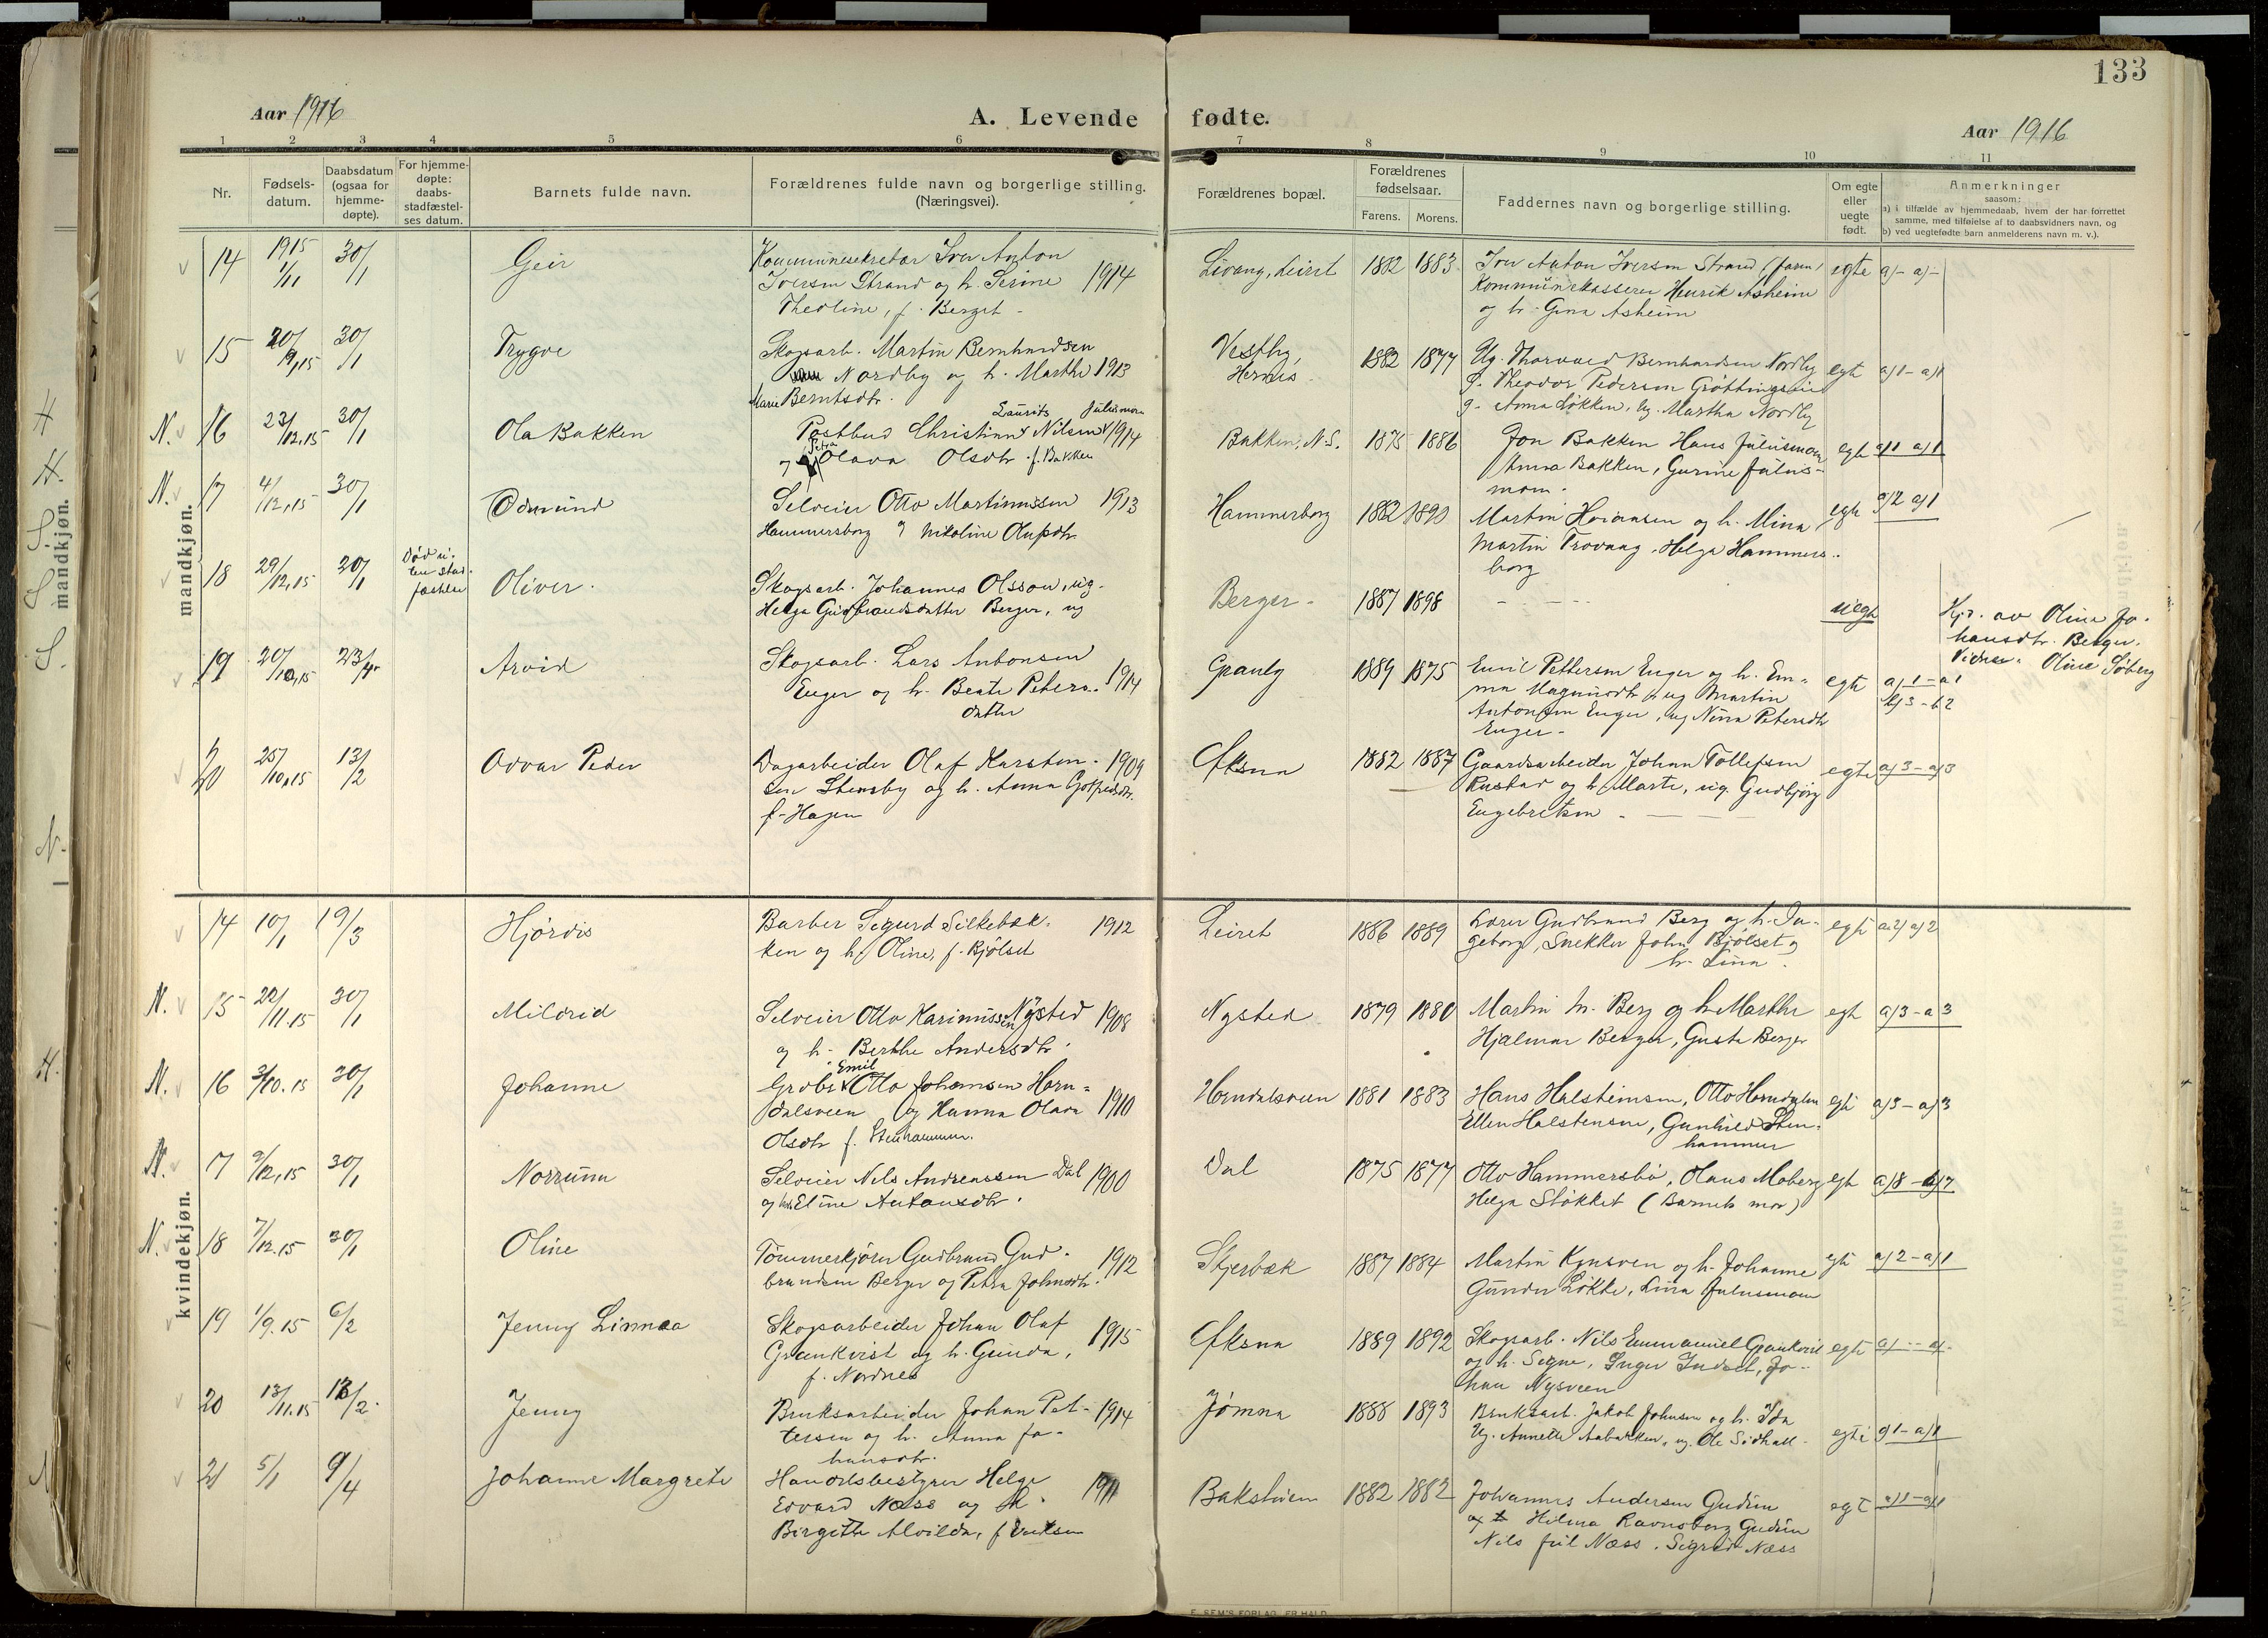 133
Aar 1916
A. Levende fødte.
Aar 1916
1 2 3 4 5 6 7 8 9 10 11
Nr.
Fødsels-
datum.
Daabsdatum
(ogsaa for
hjemme-
døpte).
For hjemme-
døpte:
daabs-
stadfæstel-
ses datum.
Barnets fulde navn.
Forældrenes fulde navn og borgerlige stilling.
(Næringsvei).
Forældrenes bopæl.
Forældrenes
fødselsaar.
Farens. Morens.
Faddernes navn og borgerlige stilling.
Om egte
eller
uegte
født.
Anmerkninger
saasom:
a) i tilfælde av hjemmedaab, hvem der har forrettet
samme, med tilføielse af to daabsvidners navn, og
b) ved uegtefødte barn anmelderens navn m. v.).
mandkjøn.
14 1915 1/11 30/1 Geir
Kommunesekretær Iver Anton
Iversen Strand og h. Serine 1914
Theoline, f. Berget
Livang, Leiret 1882 1883
Iver Anton Iversen Strand (faren)
Kommunekasserer Henrik Asheim
og h. Gina Asheim
egte a)- a)-
15 20/9,15 30/1 Trygve
Skogsarb. Martin Bernhardsen
Nordby og h. Marthe 1913
Marie Berntsdtr.
Vestby,
Hernes 1882 1877
Ug. Thorvald Bernhardsen Nordby
g. Theodor Pedersen
g. Anna Løkken, ug. Martha Nordby
egte a)1 - a)1
N. 16 23/12,15 30/1 Ola Bakken
Laurits Julusmoen
Postbud Christian Nilsen 1914
og Olava Olsdtr. f. Bakken
Bakken, N.S. 1875 1886
Jon Bakken Hans Julusmoen
Anna Bakken, Gurine Julus-
moen.
egte a)1 a)1
N. 17 4/12,15 30/1 Odmund
Selveier Otto Martinussen 1913
Hammersborg og Nikoline Olufsdtr.
Hammerborg 1882 1890
Martin Johansen og h. Mina
Martin Trovaag, Helga Hammers-
borg
egte a)2 a)1
18 29/12,15 20/1
Død u-
ten stad-
fæstelse
Oliver.
Skogsarb. Johannes Olsson, ug.
Helga Gudbrandsdatter Berger, ug
Berger 1887 1898
uegte
Hjd. av Oline Jo-
hansdtr. Berger.
Vidner: Oline Søberg
19 20/10,15 23/4 Arvid
Skogsarb. Lars Antonsen
Enger og h. Beate Peters- 1914
datter
Granly 1889 1875
Emil Pettersen Enger og h. Em-
ma Magnusdtr. ug Martin
Antonsen Enger, ug Nina Petersdtr
Enger
egte a)1 - a1
b)3 - b2
20 25/10,15 13/2 Odvar Peder
Dagarbeider Olaf Karsten- 1909
sen Stensby og h. Anna Gotfredsdtr.
f. Hagen
Øksna 1882 1887
Gaardsarbeider Johan Tollefsen
Rustad og h. Marte, ug. Gudbjørg
Engebretsen
egte a)3 - a)3
kvindekjøn.
14 10/1 19/3 Hjørdis
Barber Sigurd Silkebæk- 1912
ken og h. Oline, f. Bjølset
Leiret 1886 1889
Lærer Gudbrand Berg og h. In-
geborg, Snekker John Bjølset og
h. Lina.
egte a2) a)2
N. 15 22/11.15 30/1 Mildrid
Selveier Otto Karinussen Nysted 1908
og h. Berthe Andersdtr.
Nysted 1879 1880
Martin M. Berg og h. Marthe
Hjalmar Berger, Gusta Berger
egte a)3 - a3
N. 16 3/10.15 30/1 Johanne
Emil
Grubr. Otto Johansen Horn-
dalsveen og Hanna Olava 1910
Olsdtr f. Stenhammer.
Horndalsveen 1881 1883
Hans Halsteinsen, Otto Horndalen
Ellen Halstensen, Gunhild Sten-
hammer
egte a)3 - a)3
N. 17 9/12,15 30/1 Norrunn
Selveier Nils Andreassen Dal 1900
og Eline Antonsdtr.
Dal 1875 1877
Otto Hammersbø, Olaus Moberg
Helga Støkket (Barnets mor)
egte a)8 - a)7
N. 18 7/12.15 30/1 Oline
Tømmerkjører Gudbrand Gud- 1912
brandsen Berger og Petra Johnsdtr.
Skjerbæk 1887 1884
Martin Kynsveen og h. Johanne
Gunder Løkke, Lina Julusmoen
egte a)2 - a)1
19 1/9.15 6/2 Jenny Linnea
Skogsarbeider Johan Olaf
Grankvist og h. Gunda, 1915
f. Nordnes
Øksna 1889 1892
Skogsarb. Nils Emmanuel Grankvist
og h. Signe, Inger Indset, Jo-
han Nysveen
egte a)- - a)-
20 13/11.15 13/2. Jenny
Bruksarbeider Johan Pet- 1914
tersen og h. Anna Jo-
hansdtr.
Jømna 1888 1893
Bruksarb. Jakob Johnsen og h. Ida
Ug. Annette Aabakken, ug. Ole Sidhall
egte g1 - a)1
21 5/1 9/4 Johanne Margrete
Handelsbestyrer Helge
Edvard Næss og h. 1911
Birgitte Alvilda, f. Eriksen
Bakstuen 1882 1882
Johannes Andersen Gudim
og Hilma Ravnsborg Gudim
Nils Juil Næss. Sigrid Næss
egte a)1 - a)1
E. SEM'S FORLAG, FR.HALD